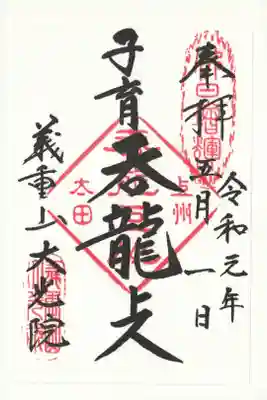 奉拝
令和元年
五月一日
子育吞龍上人
上州
太田
義重山大光院